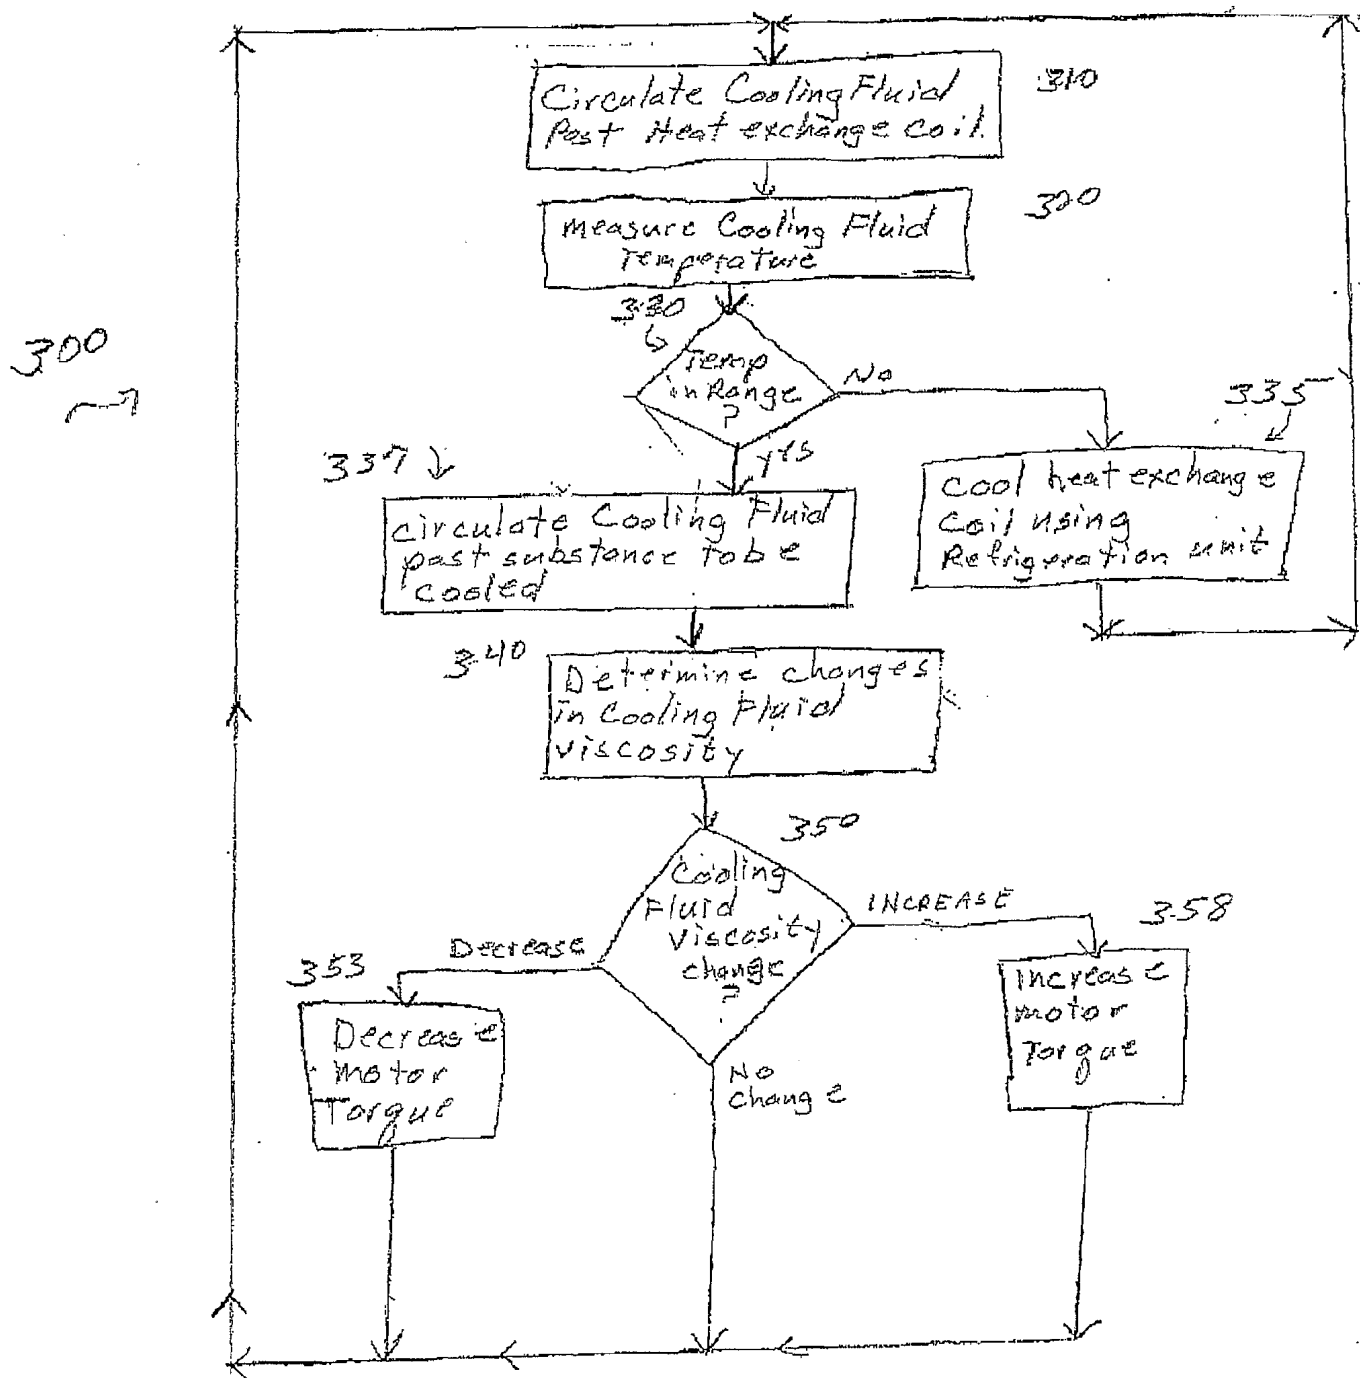 310
Circulate Cooling Fluid
Past Heat exchange coil.
320
measure Cooling Fluid
Temperature
330
300
Temp
in Range
?
No
335
yes
337
Cool heat exchange
Coil using
Refrigeration unit
circulate Cooling Fluid
past substance to be
cooled
340
Determine changes
in Cooling Fluid
viscosity
350
Cooling
Fluid
Viscosity
change
?
INCREASE
358
Decrease
353
Increase
motor
Torque
Decrease
motor
Torque
No
change